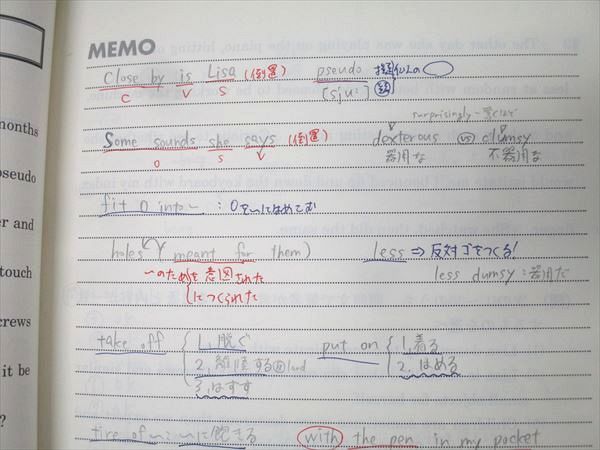 MEMO
Close by is Lisa (倒置) pseudo 擬似の
C V S [sju:]
surprisingly
Some sounds she says (倒置) dexterous ⇔ clumsy
O S V 器用な 不器用な
fit O into~ : Oを~にはめこむ
holes (meant for them) less ⇒ 反対語をつくる!
~のために意図された less clumsy : 器用だ
につくられた
take off 1, 脱ぐ put on 1, 着る
2, 離陸する ⇔ land 2, はめる
3, はずす
tire of ~ : ~に飽きる with the pen in my pocket
months
pseudo
er and
touch
crews
it be
?